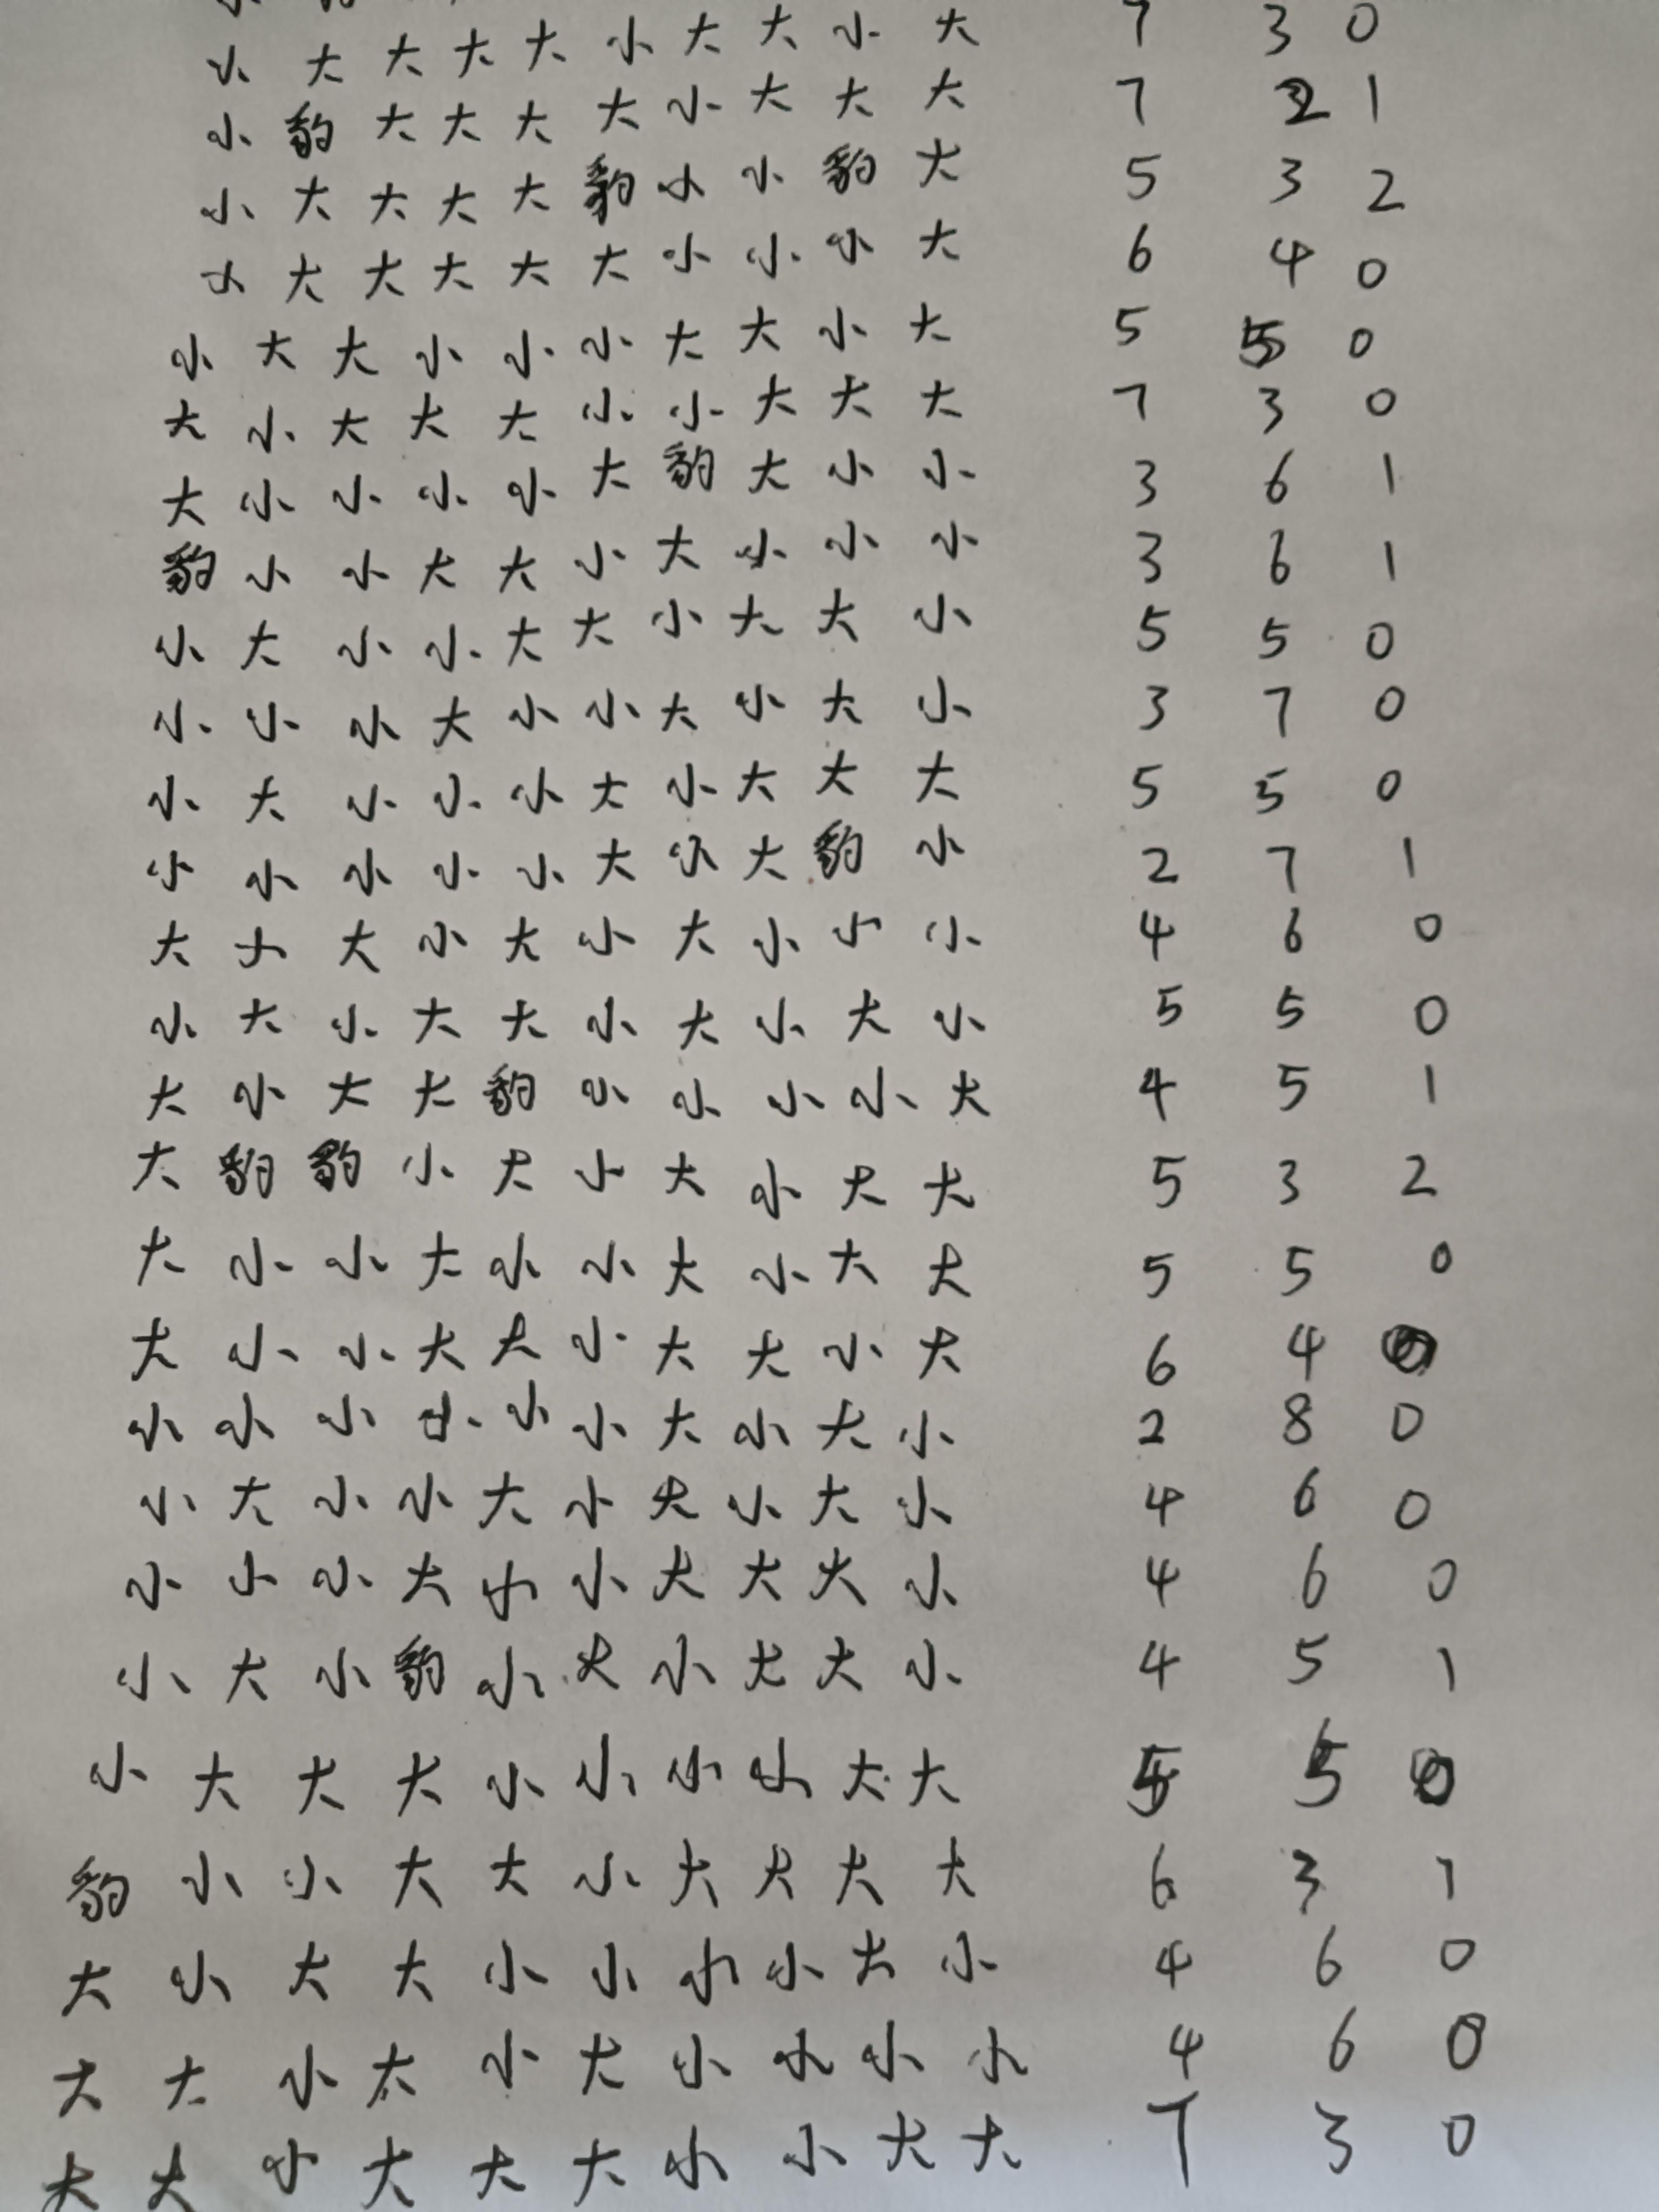 小 大 大 大 大 小 大 大 小 大 7 3 0
小 豹 大 大 大 大 小 大 大 大 7 2 1
小 大 大 大 大 豹 小 小 豹 大 5 3 2
小 大 大 大 大 大 小 小 小 大 6 4 0
小 大 大 小 小 小 大 大 小 大 5 5 0
大 小 大 大 大 小 小 大 大 大 7 3 0
大 小 小 小 小 大 豹 大 小 小 3 6 1
豹 小 小 大 大 小 大 小 小 小 3 6 1
小 大 小 小 大 大 小 大 大 小 5 5 0
小 小 小 大 小 小 大 小 大 小 3 7 0
小 大 小 小 小 大 小 大 大 大 5 5 0
小 小 小 小 小 大 小 大 豹 小 2 7 1
大 小 大 小 大 小 大 小 小 小 4 6 0
小 大 小 大 大 小 大 小 大 小 5 5 0
大 小 大 大 豹 小 小 小 小 大 4 5 1
大 豹 豹 小 大 小 大 小 大 大 5 3 2
大 小 小 大 小 小 大 小 大 大 5 5 0
大 小 小 大 大 小 大 大 小 大 6 4 0
小 小 小 小 小 小 大 小 大 小 2 8 0
小 大 小 小 大 小 大 小 大 小 4 6 0
小 小 小 大 小 小 大 大 大 小 4 6 0
小 大 小 豹 小 大 小 大 大 小 4 5 1
小 大 大 大 小 小 小 小 大 大 5 5 0
豹 小 小 大 大 小 大 大 大 大 6 3 1
大 小 大 大 小 小 小 小 大 小 4 6 0
大 大 小 大 小 大 小 小 小 小 4 6 0
大 大 小 大 大 大 小 小 大 大 7 3 0